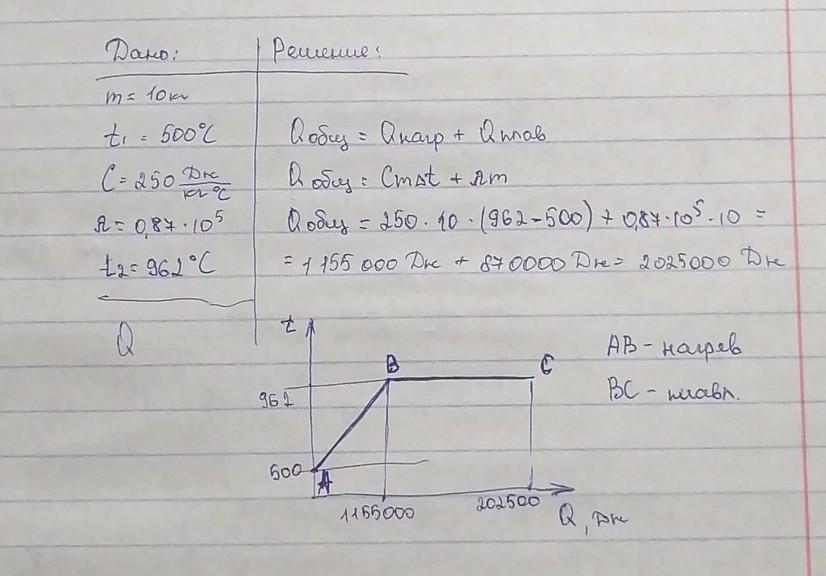 Дано:
Решение:
m = 10 кг
t₁ = 500°C
C = 250 Дж/кг°C
λ = 0,87·10⁵
t₂ = 962°C
Q
Qобщ = Qнагр + Qплав
Qобщ = Cm∆t + λm
Qобщ = 250·10·(962-500) + 0,87·10⁵·10 =
= 1155 000 Дж + 870000 Дж = 2025000 Дж
t
B
C
962
500
A
1155000
202500
Q, Дж
AB - нагрев
BC - плавл.